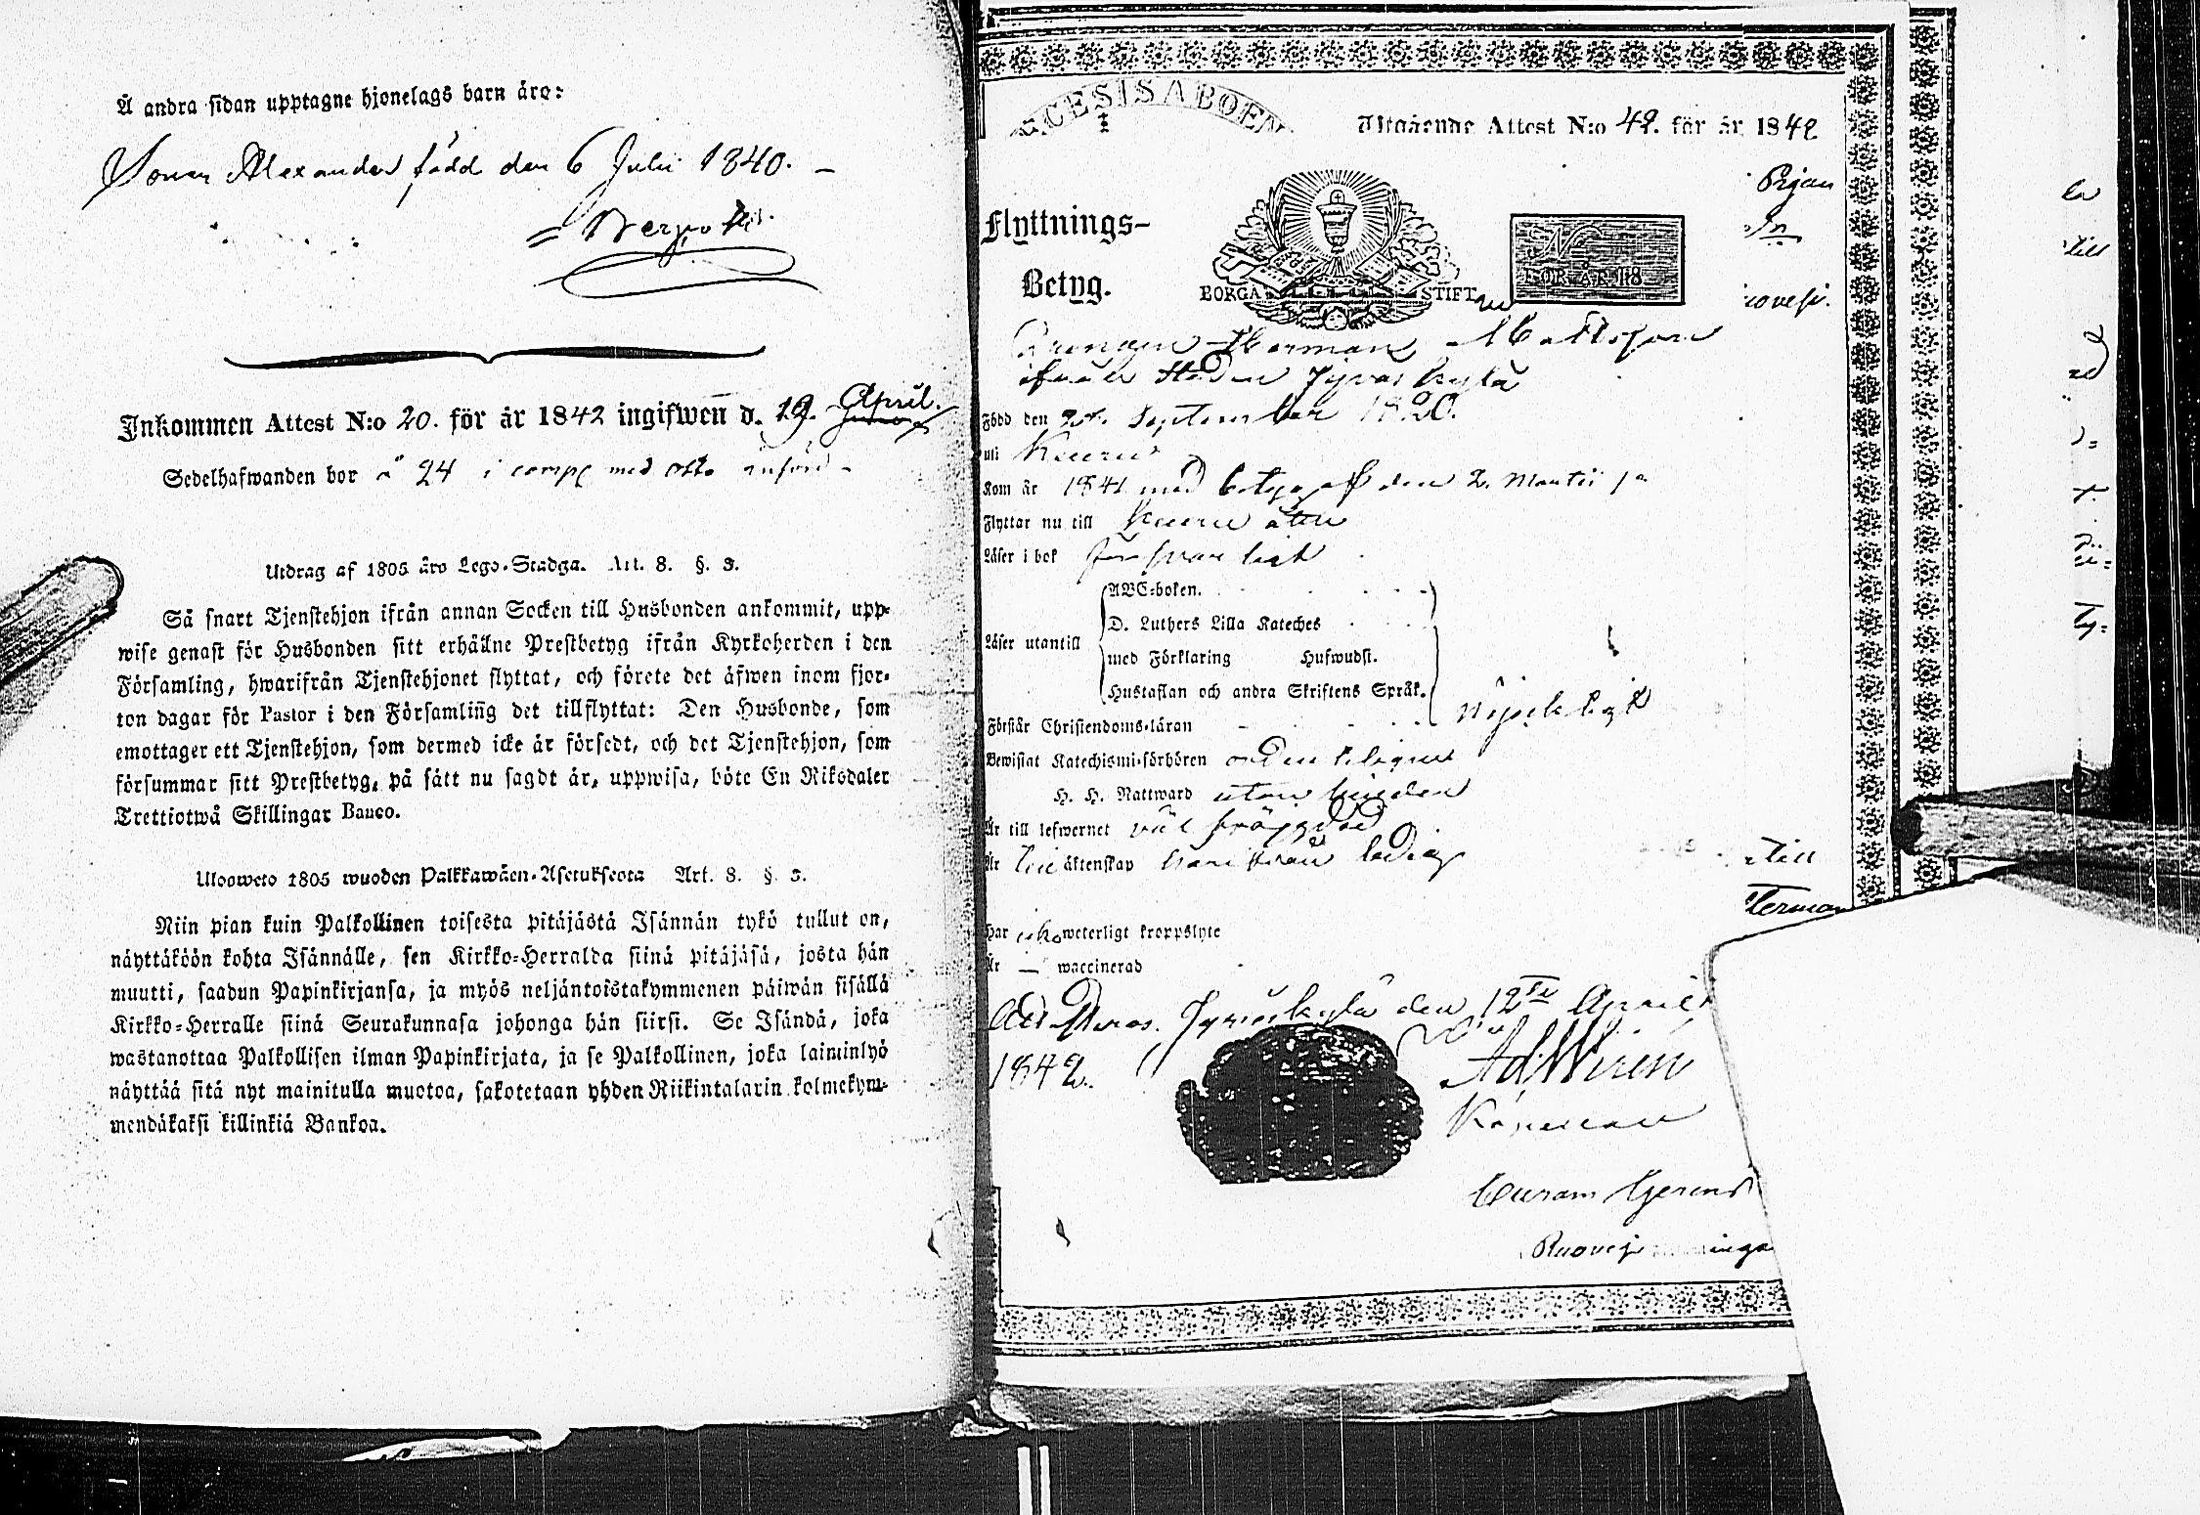 Å andra sidan upptagne hjonelags barn äro:
Sonen Alexander född den 6 Julii 1840. –
Inkommen Attest N:o 20. för år 1842 ingifwen d. 19. April.
Sedelhafwanden bor å 24 i comp med Otto
Utdrag af 1805 års Lego-Stadga. Art. 8. §. 3.
Så snart Tjenstehjon ifrån annan Socken till Husbonden ankommit, upp-
wise genast för Husbonden sitt erhållne Prestbetyg ifrån Kyrkoherden i den
Församling, hwarifrån Tjenstehjonet flyttat, och förete det äfwen inom fjor-
ton dagar för Pastor i den Församling det tillflyttat: Den Husbonde, som
emottager ett Tjenstehjon, som dermed icke är försedt, och det Tjenstehjon, som
försummar sitt Prestbetyg, på sätt nu sagdt är, uppwisa, böte En Riksdaler
Trettiotwå Skillingar Banco.
Uloosweto 1805 wuoden Palkkawäen-Asetuksesta Art. 8. §. 3.
Niin pian kuin Palkollinen toisesta pitäjästä Isännän tykö tullut on,
näyttäköön kohta Isännälle, sen Kirkko-Herralda siinä pitäjäsä, josta hän
muutti, saadun Papinkirjansa, ja myös neljäntoistakymmenen päiwän sisällä
Kirkko-Herralle siinä Seurakunnasa johonga hän siirsi. Se Isändä, joka
wastanottaa Palkollisen ilman Papinkirjata, ja se Palkollinen, joka laiminlyö
näyttää sitä nyt mainitulla muotoa, sakotetaan yhden Riikintalarin kolmekym-
mendäkaksi killinkiä Bankoa.
ECESIS ABOEN
Utgående Attest N:o 42. för år 1842
Flyttnings-
Betyg.
BORGÅ STIFT
N
FÖR ÅR 18
Drengen Herman Mattsson
ifrån Staden Jyväskylä
Född den September 1820.
uti Keuru
Kom år 1841 med betyg af den 2. Martii s a
Flyttar nu till Keuru åter
Läser i bok försvarligt
Läser utantill
ABC-boken.
D. Luthers Lilla Kateches
med Förklaring Hufwudst.
Hustaflan och andra Skriftens Språk.
Förstår Christendoms-läran nöjaktigt
Bewistat Katechismi-förhören ordenteligen
H. H. Nattward utan hinder
Är till lefwernet väl frägdad
Är till äktenskap ledig
Har icke weterligt kroppslyte
Är — waccinerad
Jyväskylä den 12te April
1842.
Ad Wirén
Kapellan
Curam Gerens
Prjan
till
Herman
till